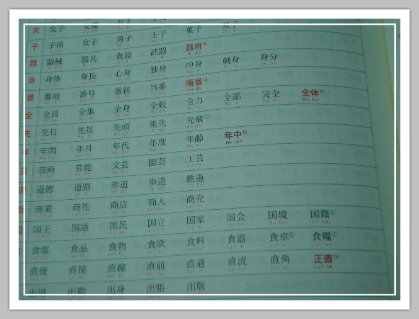 女子
子 子孫 女子 男子 王子 菓子
器 器械 器具 食器 武器 器用
身 身体 身長 心身 独身 中身 刺身 身分
番 番地 番号 番組 当番 順番
全 全員 全集 全身 全般 全力 全部 完全 全体
先 先日 先祖 先頭 祖先 先輩
年 年間 年月 年代 年度 年齢 年中
芸術 芸能 文芸 園芸 工芸
道徳 道路 赤道 歩道 鉄道
商業 商社 商店 商人 商売
国王 国語 国民 国立 国家 国会 国境 国籍
食塩 食品 食物 食欲 食料 食器 食卓 食糧
直後 直接 直線 直前 直通 直流 直角 正直
出勤 出身 出張 出版